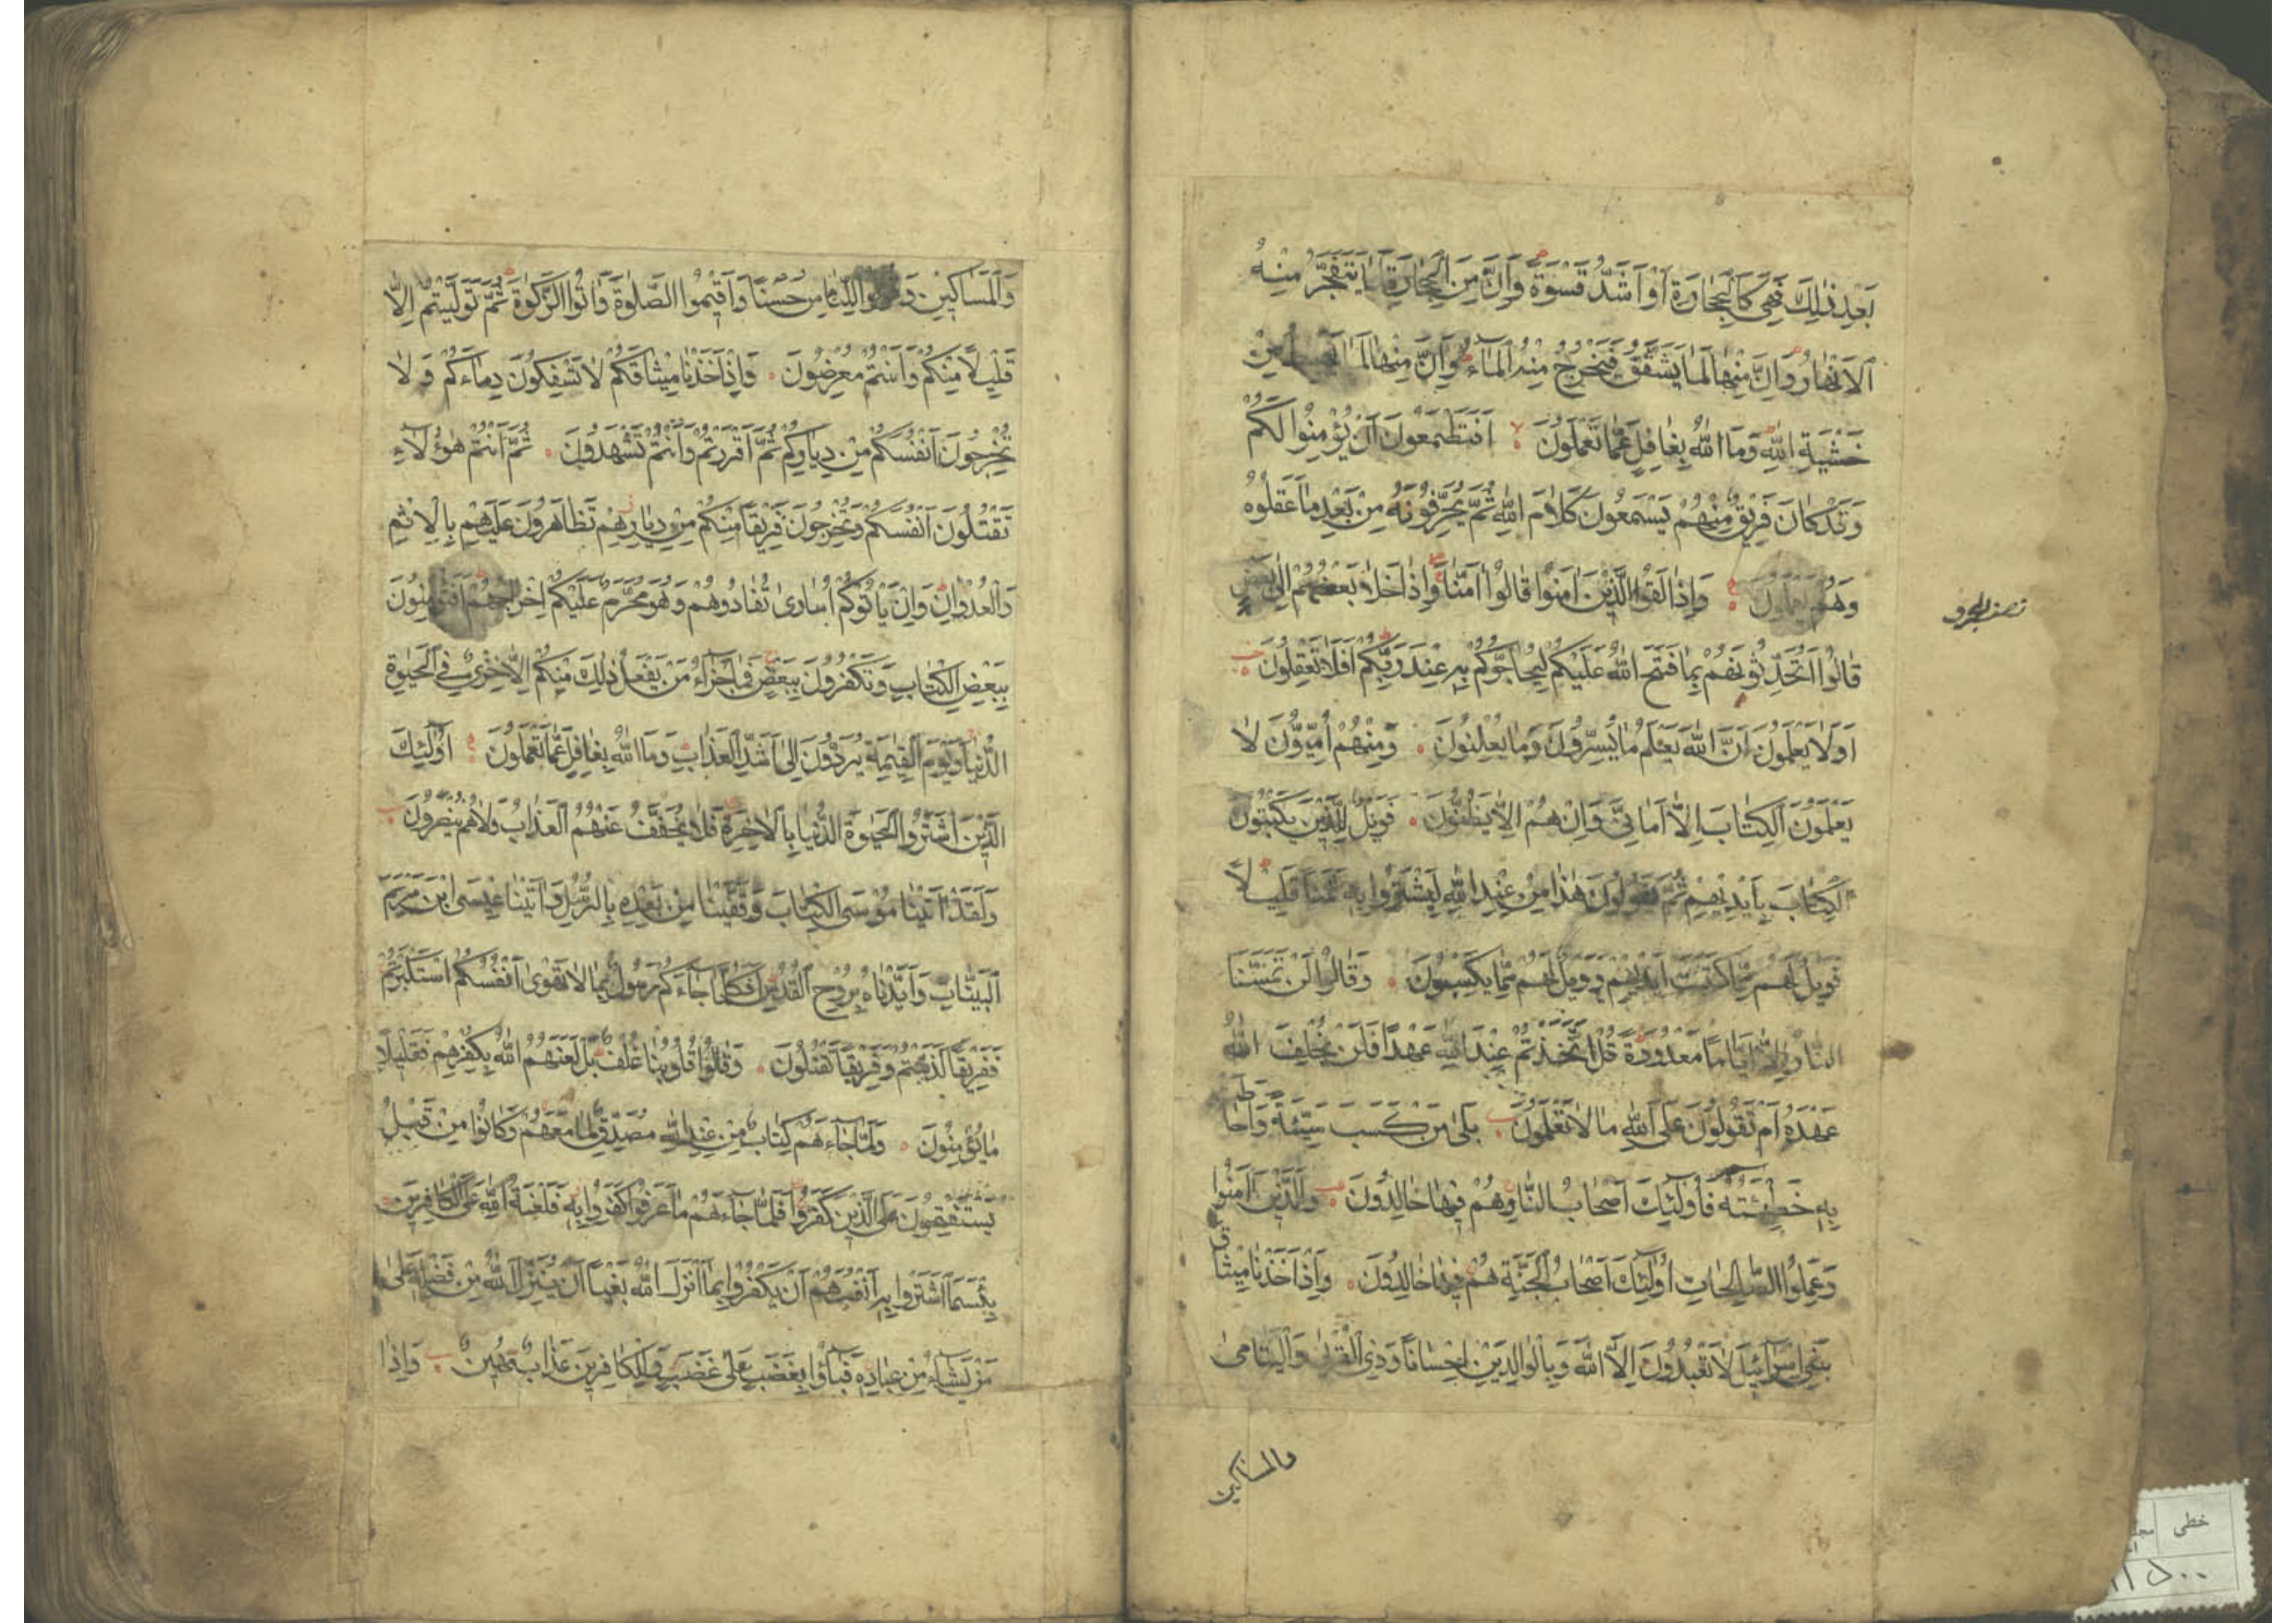 بَعْدِ ذٰلِكَ فَهِيَ كَالْحِجَارَةِ اَوْ اَشَدُّ قَسْوَةً وَاِنَّ مِنَ الْحِجَارَةِ لَمَا يَتَفَجَّرُ مِنْهُ
الْاَنْهَارُ وَاِنَّ مِنْهَا لَمَا يَشَّقَّقُ فَيَخْرُجُ مِنْهُ الْمَاءُ وَاِنَّ مِنْهَا لَمَا يَهْبِطُ مِنْ
خَشْيَةِ اللّٰهِ وَمَا اللّٰهُ بِغَافِلٍ عَمَّا تَعْمَلُونَ اَفَتَطْمَعُونَ اَنْ يُؤْمِنُوا لَكُمْ
وَقَدْ كَانَ فَرِيقٌ مِنْهُمْ يَسْمَعُونَ كَلَامَ اللّٰهِ ثُمَّ يُحَرِّفُونَهُ مِنْ بَعْدِ مَا عَقَلُوهُ
وَهُمْ يَعْلَمُونَ وَاِذَا لَقُوا الَّذِينَ اٰمَنُوا قَالُوا اٰمَنَّا وَاِذَا خَلَا بَعْضُهُمْ اِلٰى بَعْضٍ
نصف الجزو
قَالُوا اَتُحَدِّثُونَهُمْ بِمَا فَتَحَ اللّٰهُ عَلَيْكُمْ لِيُحَاجُّوكُمْ بِهِ عِنْدَ رَبِّكُمْ اَفَلَا تَعْقِلُونَ
اَوَلَا يَعْلَمُونَ اَنَّ اللّٰهَ يَعْلَمُ مَا يُسِرُّونَ وَمَا يُعْلِنُونَ وَمِنْهُمْ اُمِّيُّونَ لَا
يَعْلَمُونَ الْكِتَابَ اِلَّا اَمَانِيَّ وَاِنْ هُمْ اِلَّا يَظُنُّونَ فَوَيْلٌ لِلَّذِينَ يَكْتُبُونَ
الْكِتَابَ بِاَيْدِيهِمْ ثُمَّ يَقُولُونَ هٰذَا مِنْ عِنْدِ اللّٰهِ لِيَشْتَرُوا بِهِ ثَمَنًا قَلِيلًا
فَوَيْلٌ لَهُمْ مِمَّا كَتَبَتْ اَيْدِيهِمْ وَوَيْلٌ لَهُمْ مِمَّا يَكْسِبُونَ وَقَالُوا لَنْ تَمَسَّنَا
النَّارُ اِلَّا اَيَّامًا مَعْدُودَةً قُلْ اَتَّخَذْتُمْ عِنْدَ اللّٰهِ عَهْدًا فَلَنْ يُخْلِفَ اللّٰهُ
عَهْدَهُ اَمْ تَقُولُونَ عَلَى اللّٰهِ مَا لَا تَعْلَمُونَ بَلٰى مَنْ كَسَبَ سَيِّئَةً وَاَحَاطَتْ
بِهِ خَطِيئَتُهُ فَاُولٰئِكَ اَصْحَابُ النَّارِ هُمْ فِيهَا خَالِدُونَ وَالَّذِينَ اٰمَنُوا
وَعَمِلُوا الصَّالِحَاتِ اُولٰئِكَ اَصْحَابُ الْجَنَّةِ هُمْ فِيهَا خَالِدُونَ وَاِذْ اَخَذْنَا مِيثَاقَ
بَنِي اِسْرَائِيلَ لَا تَعْبُدُونَ اِلَّا اللّٰهَ وَبِالْوَالِدَيْنِ اِحْسَانًا وَذِي الْقُرْبٰى وَالْيَتَامٰى
والمساكين
وَالْمَسَاكِينِ وَقُولُوا لِلنَّاسِ حُسْنًا وَاَقِيمُوا الصَّلٰوةَ وَاٰتُوا الزَّكٰوةَ ثُمَّ تَوَلَّيْتُمْ اِلَّا
قَلِيلًا مِنْكُمْ وَاَنْتُمْ مُعْرِضُونَ وَاِذْ اَخَذْنَا مِيثَاقَكُمْ لَا تَسْفِكُونَ دِمَاءَكُمْ وَلَا
تُخْرِجُونَ اَنْفُسَكُمْ مِنْ دِيَارِكُمْ ثُمَّ اَقْرَرْتُمْ وَاَنْتُمْ تَشْهَدُونَ ثُمَّ اَنْتُمْ هٰؤُلَاءِ
تَقْتُلُونَ اَنْفُسَكُمْ وَتُخْرِجُونَ فَرِيقًا مِنْكُمْ مِنْ دِيَارِهِمْ تَظَاهَرُونَ عَلَيْهِمْ بِالْاِثْمِ
وَالْعُدْوَانِ وَاِنْ يَاْتُوكُمْ اُسَارٰى تُفَادُوهُمْ وَهُوَ مُحَرَّمٌ عَلَيْكُمْ اِخْرَاجُهُمْ اَفَتُؤْمِنُونَ
بِبَعْضِ الْكِتَابِ وَتَكْفُرُونَ بِبَعْضٍ فَمَا جَزَاءُ مَنْ يَفْعَلُ ذٰلِكَ مِنْكُمْ اِلَّا خِزْيٌ فِي الْحَيٰوةِ
الدُّنْيَا وَيَوْمَ الْقِيٰمَةِ يُرَدُّونَ اِلٰى اَشَدِّ الْعَذَابِ وَمَا اللّٰهُ بِغَافِلٍ عَمَّا تَعْمَلُونَ اُولٰئِكَ
الَّذِينَ اشْتَرَوُا الْحَيٰوةَ الدُّنْيَا بِالْاٰخِرَةِ فَلَا يُخَفَّفُ عَنْهُمُ الْعَذَابُ وَلَا هُمْ يُنْصَرُونَ
وَلَقَدْ اٰتَيْنَا مُوسَى الْكِتَابَ وَقَفَّيْنَا مِنْ بَعْدِهِ بِالرُّسُلِ وَاٰتَيْنَا عِيسَى ابْنَ مَرْيَمَ
الْبَيِّنَاتِ وَاَيَّدْنَاهُ بِرُوحِ الْقُدُسِ اَفَكُلَّمَا جَاءَكُمْ رَسُولٌ بِمَا لَا تَهْوٰى اَنْفُسُكُمُ اسْتَكْبَرْتُمْ
فَفَرِيقًا كَذَّبْتُمْ وَفَرِيقًا تَقْتُلُونَ وَقَالُوا قُلُوبُنَا غُلْفٌ بَلْ لَعَنَهُمُ اللّٰهُ بِكُفْرِهِمْ فَقَلِيلًا
مَا يُؤْمِنُونَ وَلَمَّا جَاءَهُمْ كِتَابٌ مِنْ عِنْدِ اللّٰهِ مُصَدِّقٌ لِمَا مَعَهُمْ وَكَانُوا مِنْ قَبْلُ
يَسْتَفْتِحُونَ عَلَى الَّذِينَ كَفَرُوا فَلَمَّا جَاءَهُمْ مَا عَرَفُوا كَفَرُوا بِهِ فَلَعْنَةُ اللّٰهِ عَلَى الْكَافِرِينَ
بِئْسَمَا اشْتَرَوْا بِهِ اَنْفُسَهُمْ اَنْ يَكْفُرُوا بِمَا اَنْزَلَ اللّٰهُ بَغْيًا اَنْ يُنَزِّلَ اللّٰهُ مِنْ فَضْلِهِ عَلٰى
مَنْ يَشَاءُ مِنْ عِبَادِهِ فَبَاؤُا بِغَضَبٍ عَلٰى غَضَبٍ وَلِلْكَافِرِينَ عَذَابٌ مُهِينٌ وَاِذَا
خطی